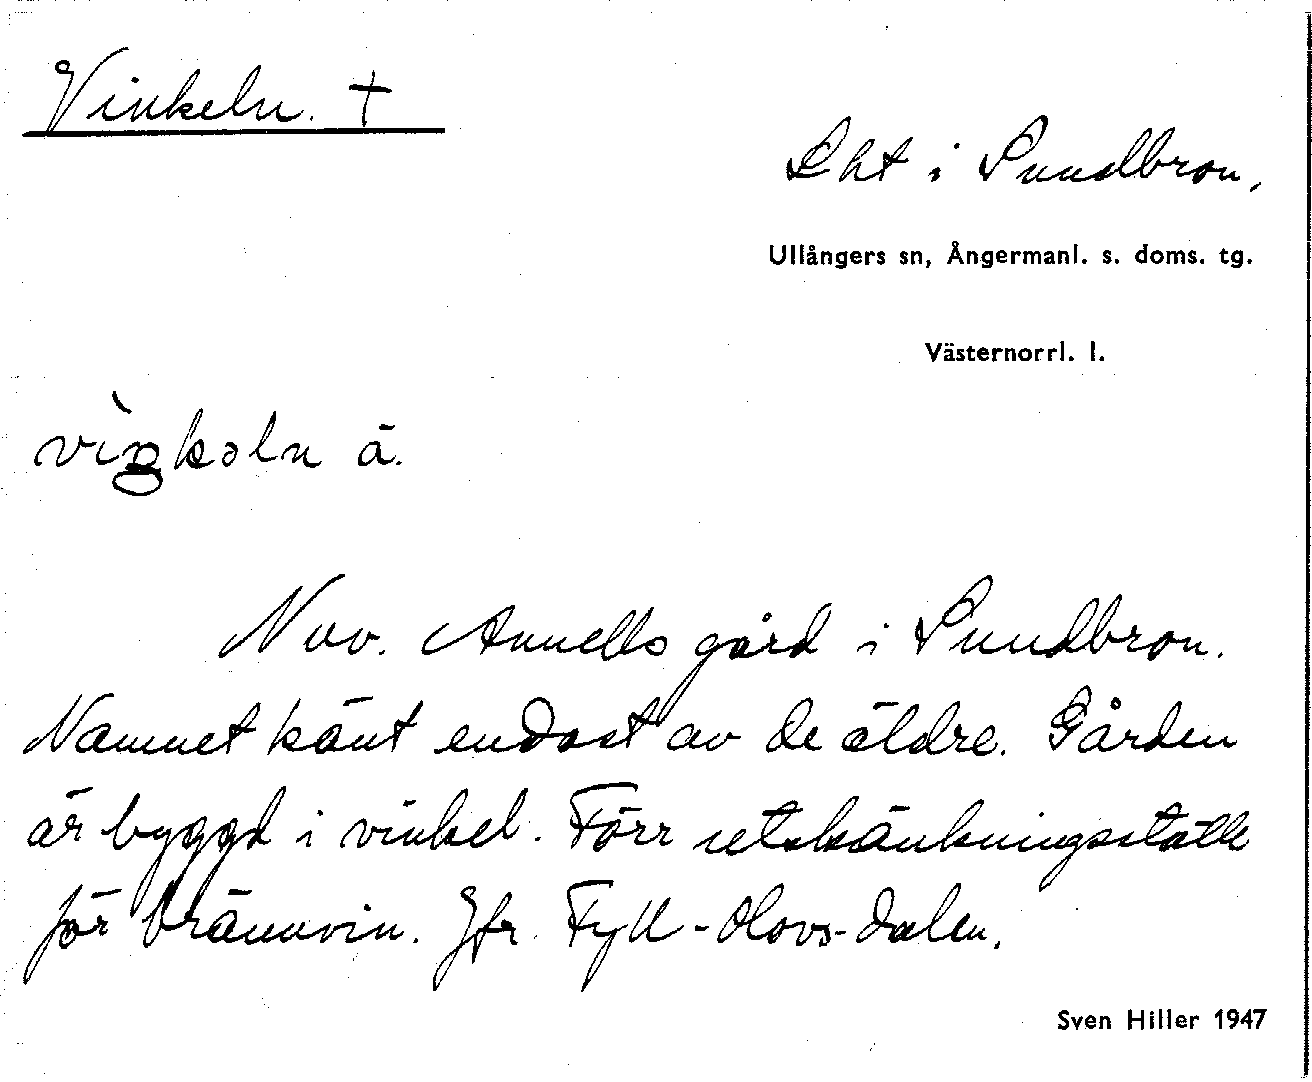 Vinkeln. †
Lht i Sundbron,
Ullångers sn, Ångermanl. s. doms. tg.
Västernorrl. l.
vìŋkəln ä.
Nuv. Annells gård i Sundbron.
Namnet känt endast av de äldre. Gården
är byggd i vinkel. Förr utskänkningsställe
för brännvin. Jfr. Fyll-Olovs-dalen.
Sven Hiller 1947